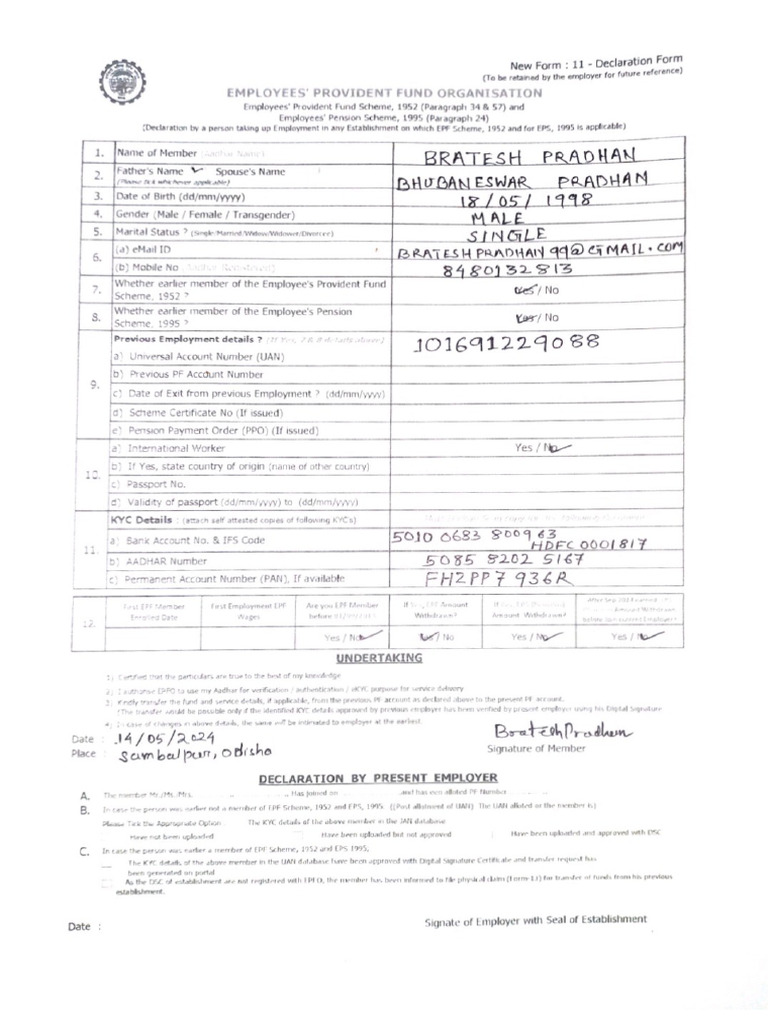 New Form : 11 - Declaration Form
(To be retained by the employer for future reference)
EMPLOYEES' PROVIDENT FUND ORGANISATION
Employees' Provident Fund Scheme, 1952 (Paragraph 34 & 57) and
Employees' Pension Scheme, 1995 (Paragraph 24)
(Declaration by a person taking up Employment in any Establishment on which EPF Scheme, 1952 and for EPS, 1995 is applicable)
1. Name of Member (Aadhar Name) BRATESH PRADHAN
2. Father's Name ✓ Spouse's Name BHUBANESWAR PRADHAN
(Please tick whichever applicable)
3. Date of Birth (dd/mm/yyyy) 18/05/1998
4. Gender (Male / Female / Transgender) MALE
5. Marital Status ? (Single/Married/Widow/Widower/Divorcee) SINGLE
6. (a) eMail ID BRATESHPRADHAN99@GMAIL.COM
(b) Mobile No (Aadhar Registered) 8480132813
7. Whether earlier member of the Employee's Provident Fund Scheme, 1952 ? Yes / No
8. Whether earlier member of the Employee's Pension Scheme, 1995 ? Yes / No
9. Previous Employment details ? (If Yes, 7 & 8 details above)
a) Universal Account Number (UAN) 101691229088
b) Previous PF Account Number
c) Date of Exit from previous Employment ? (dd/mm/yyyy)
d) Scheme Certificate No (If issued)
e) Pension Payment Order (PPO) (If issued)
10. a) International Worker Yes / No ✓
b) If Yes, state country of origin (name of other country)
c) Passport No.
d) Validity of passport (dd/mm/yyyy) to (dd/mm/yyyy)
11. KYC Details : (attach self attested copies of following KYC's)
a) Bank Account No. & IFS Code 5010 0683 800963
HDFC0001817
b) AADHAR Number 5085 8202 5167
c) Permanent Account Number (PAN), If available FHZPP7936R
12. First EPF Member Enrolled Date
First Employment EPF Wages
Are you EPF Member before 01/09/2014
If Yes, EPF Amount Withdrawn?
If Yes, EPS Amount Withdrawn?
Yes / No ✓ Yes / No Yes / No ✓ Yes / No ✓
UNDERTAKING
1) Certified that the particulars are true to the best of my knowledge
2) I authorise EPFO to use my Aadhar for verification / authentication / eKYC purpose for service delivery
3) Kindly transfer the fund and service details, if applicable, from the previous PF account as declared above to the present PF account.
(The transfer would be possible only if the identified KYC details approved by previous employer has been verified by present employer using his Digital Signature
4) In case of changes in above details, the same will be intimated to employer at the earliest
Date : 14/05/2024
BrateshPradhan
Place : Sambalpur, Odisha
Signature of Member
DECLARATION BY PRESENT EMPLOYER
A. The member Mr./Ms./Mrs. Has Joined on and has been alloted PF Number
B. In case the person was earlier not a member of EPF Scheme, 1952 and EPS, 1995. ((Post allotment of UAN) The UAN alloted or the member is)
Please Tick the Appropriate Option : The KYC details of the above member in the UAN database
Have not been uploaded Have been uploaded but not approved Have been uploaded and approved with DSC
C. In case the person was earlier a member of EPF Scheme, 1952 and EPS 1995,
The KYC details of the above member in the UAN database have been approved with Digital Signature Certificate and transfer request has been generated on portal
As the DSC of establishment are not registered with EPFO, the member has been informed to file physical claim (Form-13) for transfer of funds from his previous establishment.
Date :
Signate of Employer with Seal of Establishment